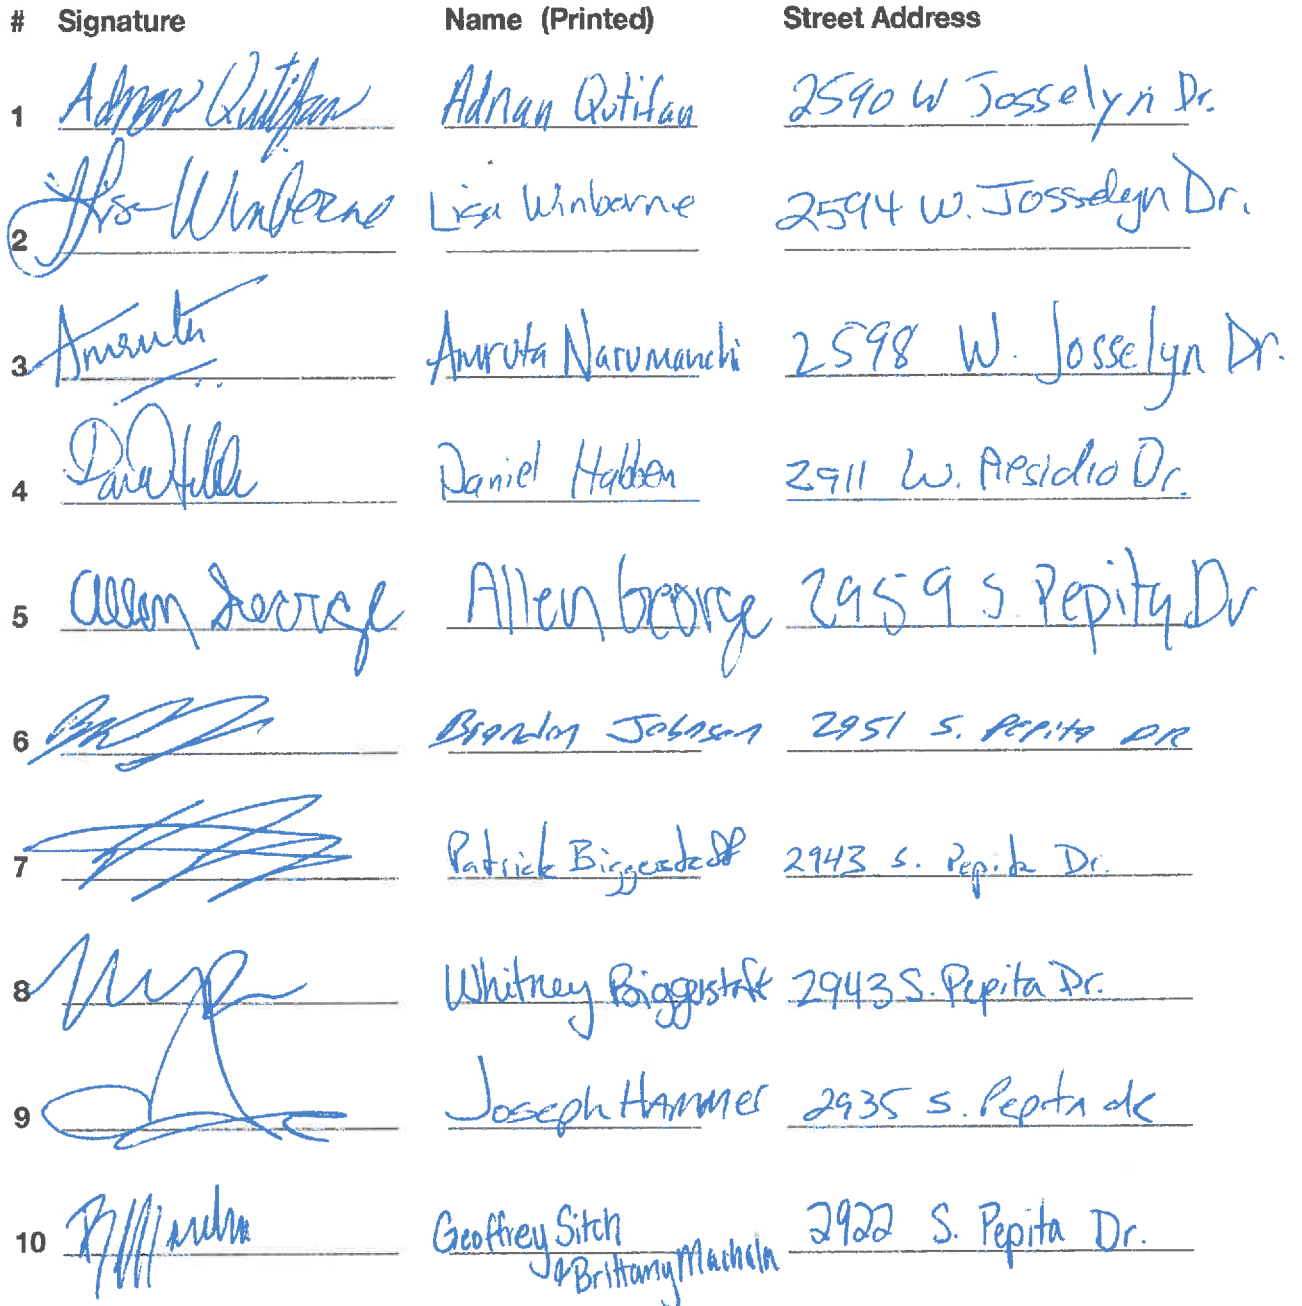 # Signature Name (Printed) Street Address
1 Adnan Qutifan Adnan Qutifan 2590 W Josselyn Dr.
2 Lisa Winborne Lisa Winborne 2594 W. Josselyn Dr.
3 Amruta Amruta Narumanchi 2598 W. Josselyn Dr.
4 Daniel Habben 2911 W. Presidio Dr.
5 Allen George Allen George 2959 S Pepita Dr
6 Brandon Johnson 2951 S. Pepita DR
7 Patrick Biggerstaff 2943 S. Pepita Dr.
8 Whitney Biggerstaff 2943 S. Pepita Dr.
9 Joseph Hammer 2935 S. Pepita dr
10 Geoffrey Sitch 2922 S. Pepita Dr.
& Brittany Machala